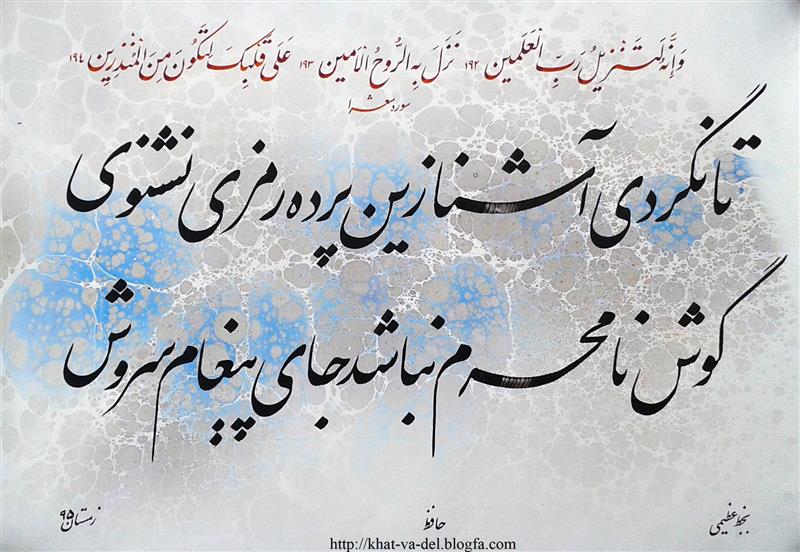 وَإِنَّهُ لَتَنزِيلُ رَبِّ الْعَلَمِينَ ١٩٢ نَزَلَ بِهِ الرُّوحُ الْأَمِينُ ١٩٣ عَلَى قَلْبِكَ لِتَكُونَ مِنَ الْمُنذِرِينَ ١٩٤
سوره شعرا
تا نگردی آشنا زین پرده رمزی نشنوی
گوش نامحرم نباشد جای پیغام سروش
بخط عظیمی
حافظ
زمستان ۹۵
http://khat-va-del.blogfa.com